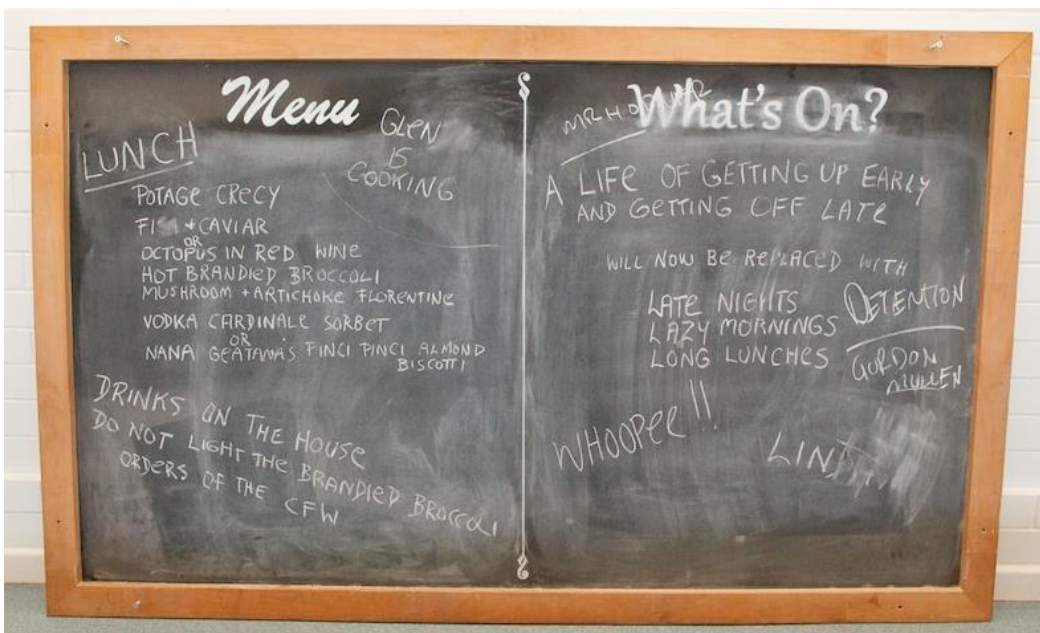 Menu
GLEN
IS
COOKING
LUNCH
POTAGE CRECY
FISH + CAVIAR
OR
OCTOPUS IN RED WINE
HOT BRANDIED BROCCOLI
MUSHROOM + ARTICHOKE FLORENTINE
VODKA CARDINALE SORBET
OR
NANA GEATANA'S FINCI PINCI ALMOND
BISCOTTI
DRINKS ON THE HOUSE
DO NOT LIGHT THE BRANDIED BROCCOLI
ORDERS OF THE
CFW
What's On?
MR
A LIFE OF GETTING UP EARLY
AND GETTING OFF LATE
WILL NOW BE REPLACED WITH
LATE NIGHTS
LAZY MORNINGS
LONG LUNCHES
DETENTION
GORDON
MULLEN
WHOOPEE!!